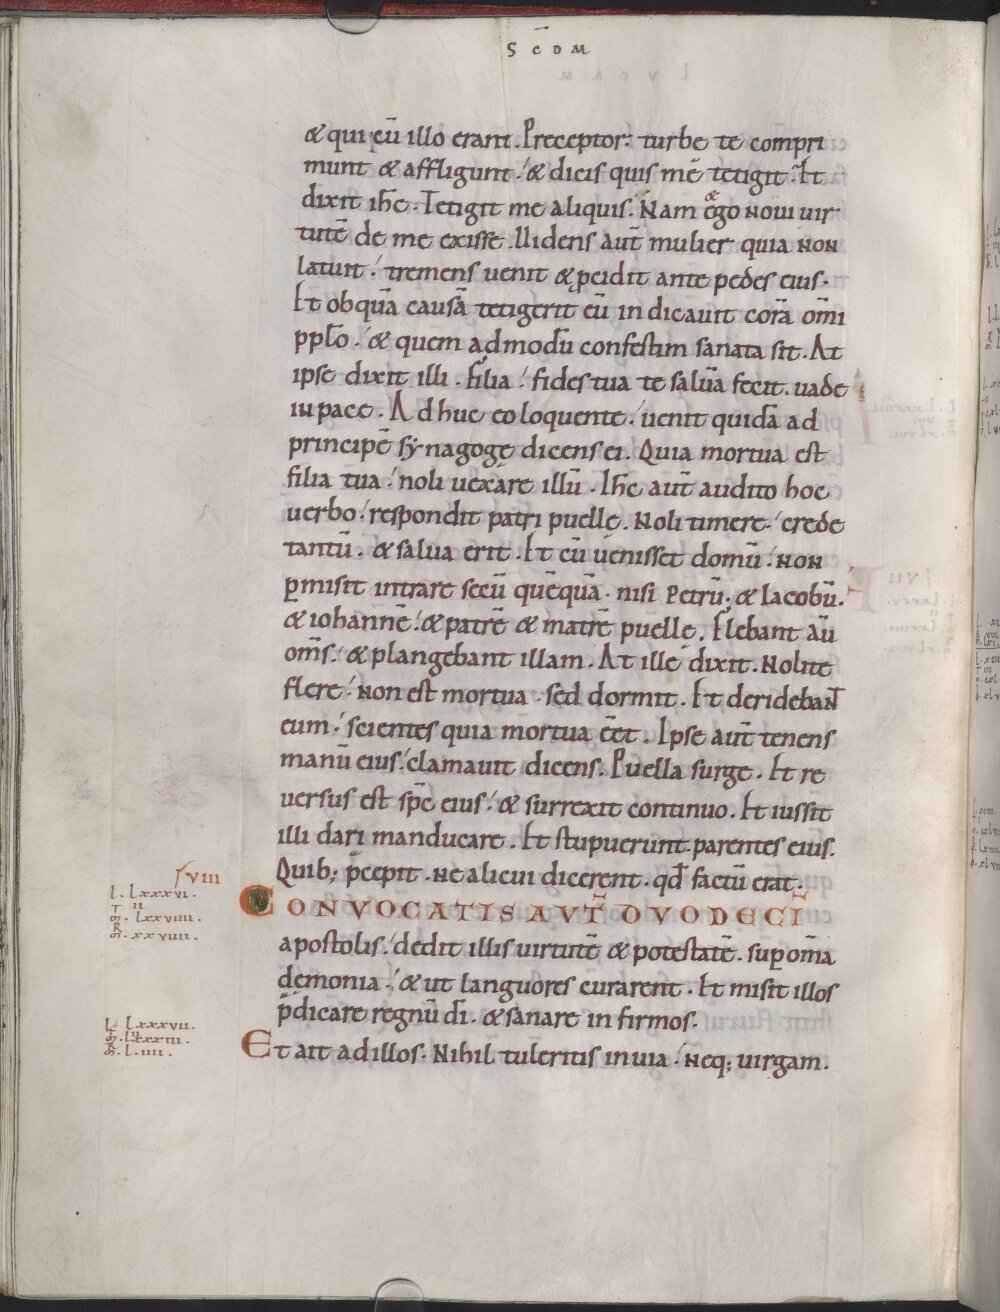 SCDM̄
& qui cū illo erant. Preceptor: turbe te compri
munt & affligunt; & dicis quis me tetigit? Et
dixit ihc̄. Tetigit me aliquis. Nam & ego noui uir
tutē de me exisse. Uidens aut̄ mulier quia non
latuit; tremens uenit & ꝓcidit ante pedes eius.
Et ob quā causā tetigerit eū indicauit corā om̄i
pplo; & quem admodū confestim sanata sit. At
ipse dixit illi. Filia; fides tua te saluā fecit. uade
in pace. Adhuc eo loquente; uenit quidā ad
principē synagogę dicens ei. Quia mortua est
filia tua; noli uexare illū. Ihc̄ aut̄ audito hoc
uerbo; respondit patri puellę. Noli timere; crede
tantū. & salua erit. Et cū uenisset domū; non
ꝑmisit intrare secū quēquā. nisi petrū; & iacobū.
& iohannē; & patrē & matrē puellę. Flebant aū
om̄s; & plangebant illam. At ille dixit. Nolite
flere; non est mortua. sed dormit. Et deridebant
eum; scientes quia mortua eēt. Ipse aut̄ tenens
manū eius; clamauit dicens. Puella surge. Et re
uersus est sp̄c eius; & surrexit continuo. Et iussit
illi dari manducare. Et stupuerunt parentes eius.
Quib; p̄cepit. ne alicui dicerent. qđ factū erat.
CONVOCATIS AVT̄ DVODECĪ
apostolis; dedit illis uirtutē & potestatē. suꝑ om̄a
demonia; & ut languores curarent. Et misit illos
p̄dicare regnū dī. & sanare infirmos.
Et ait ad illos. Nihil tuleritis in uia; neq; uirgam.
VIII
L. lxxxvi.
II
M̄R. lxxviiii.
M̄T. xxviiii.
L. lxxxvii.